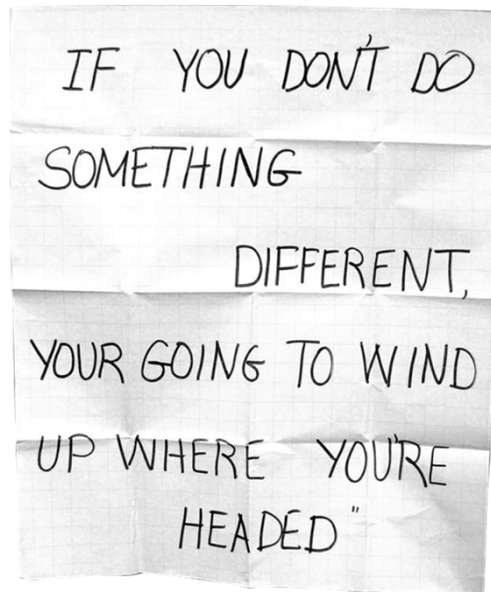 IF YOU DON'T DO
SOMETHING
DIFFERENT,
YOUR GOING TO WIND
UP WHERE YOU'RE
HEADED"